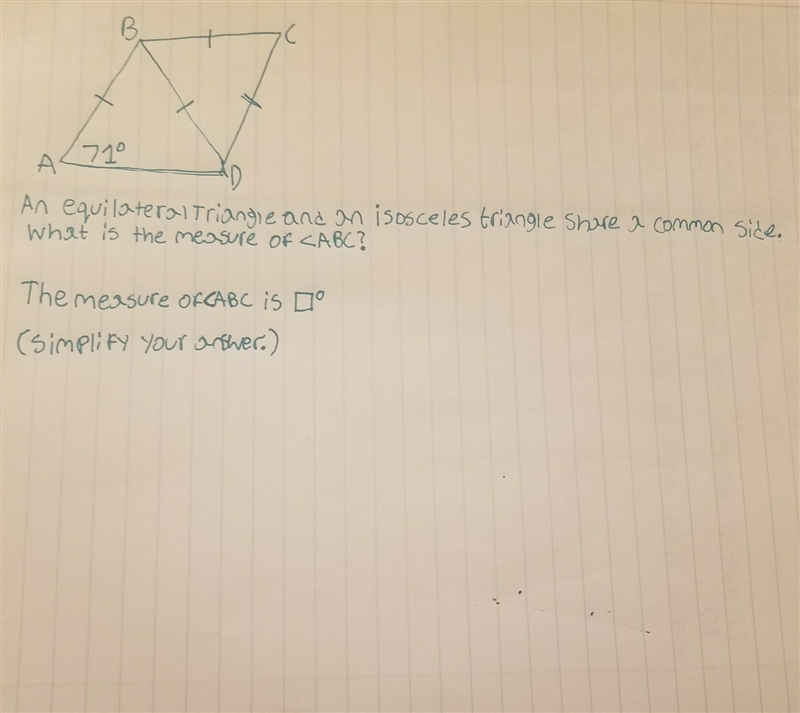 B
C
A 71°
D
An equilateral Triangle and an isosceles triangle share a common side.
What is the measure of <ABC?
The measure of <ABC is □°
(Simplify your answer.)